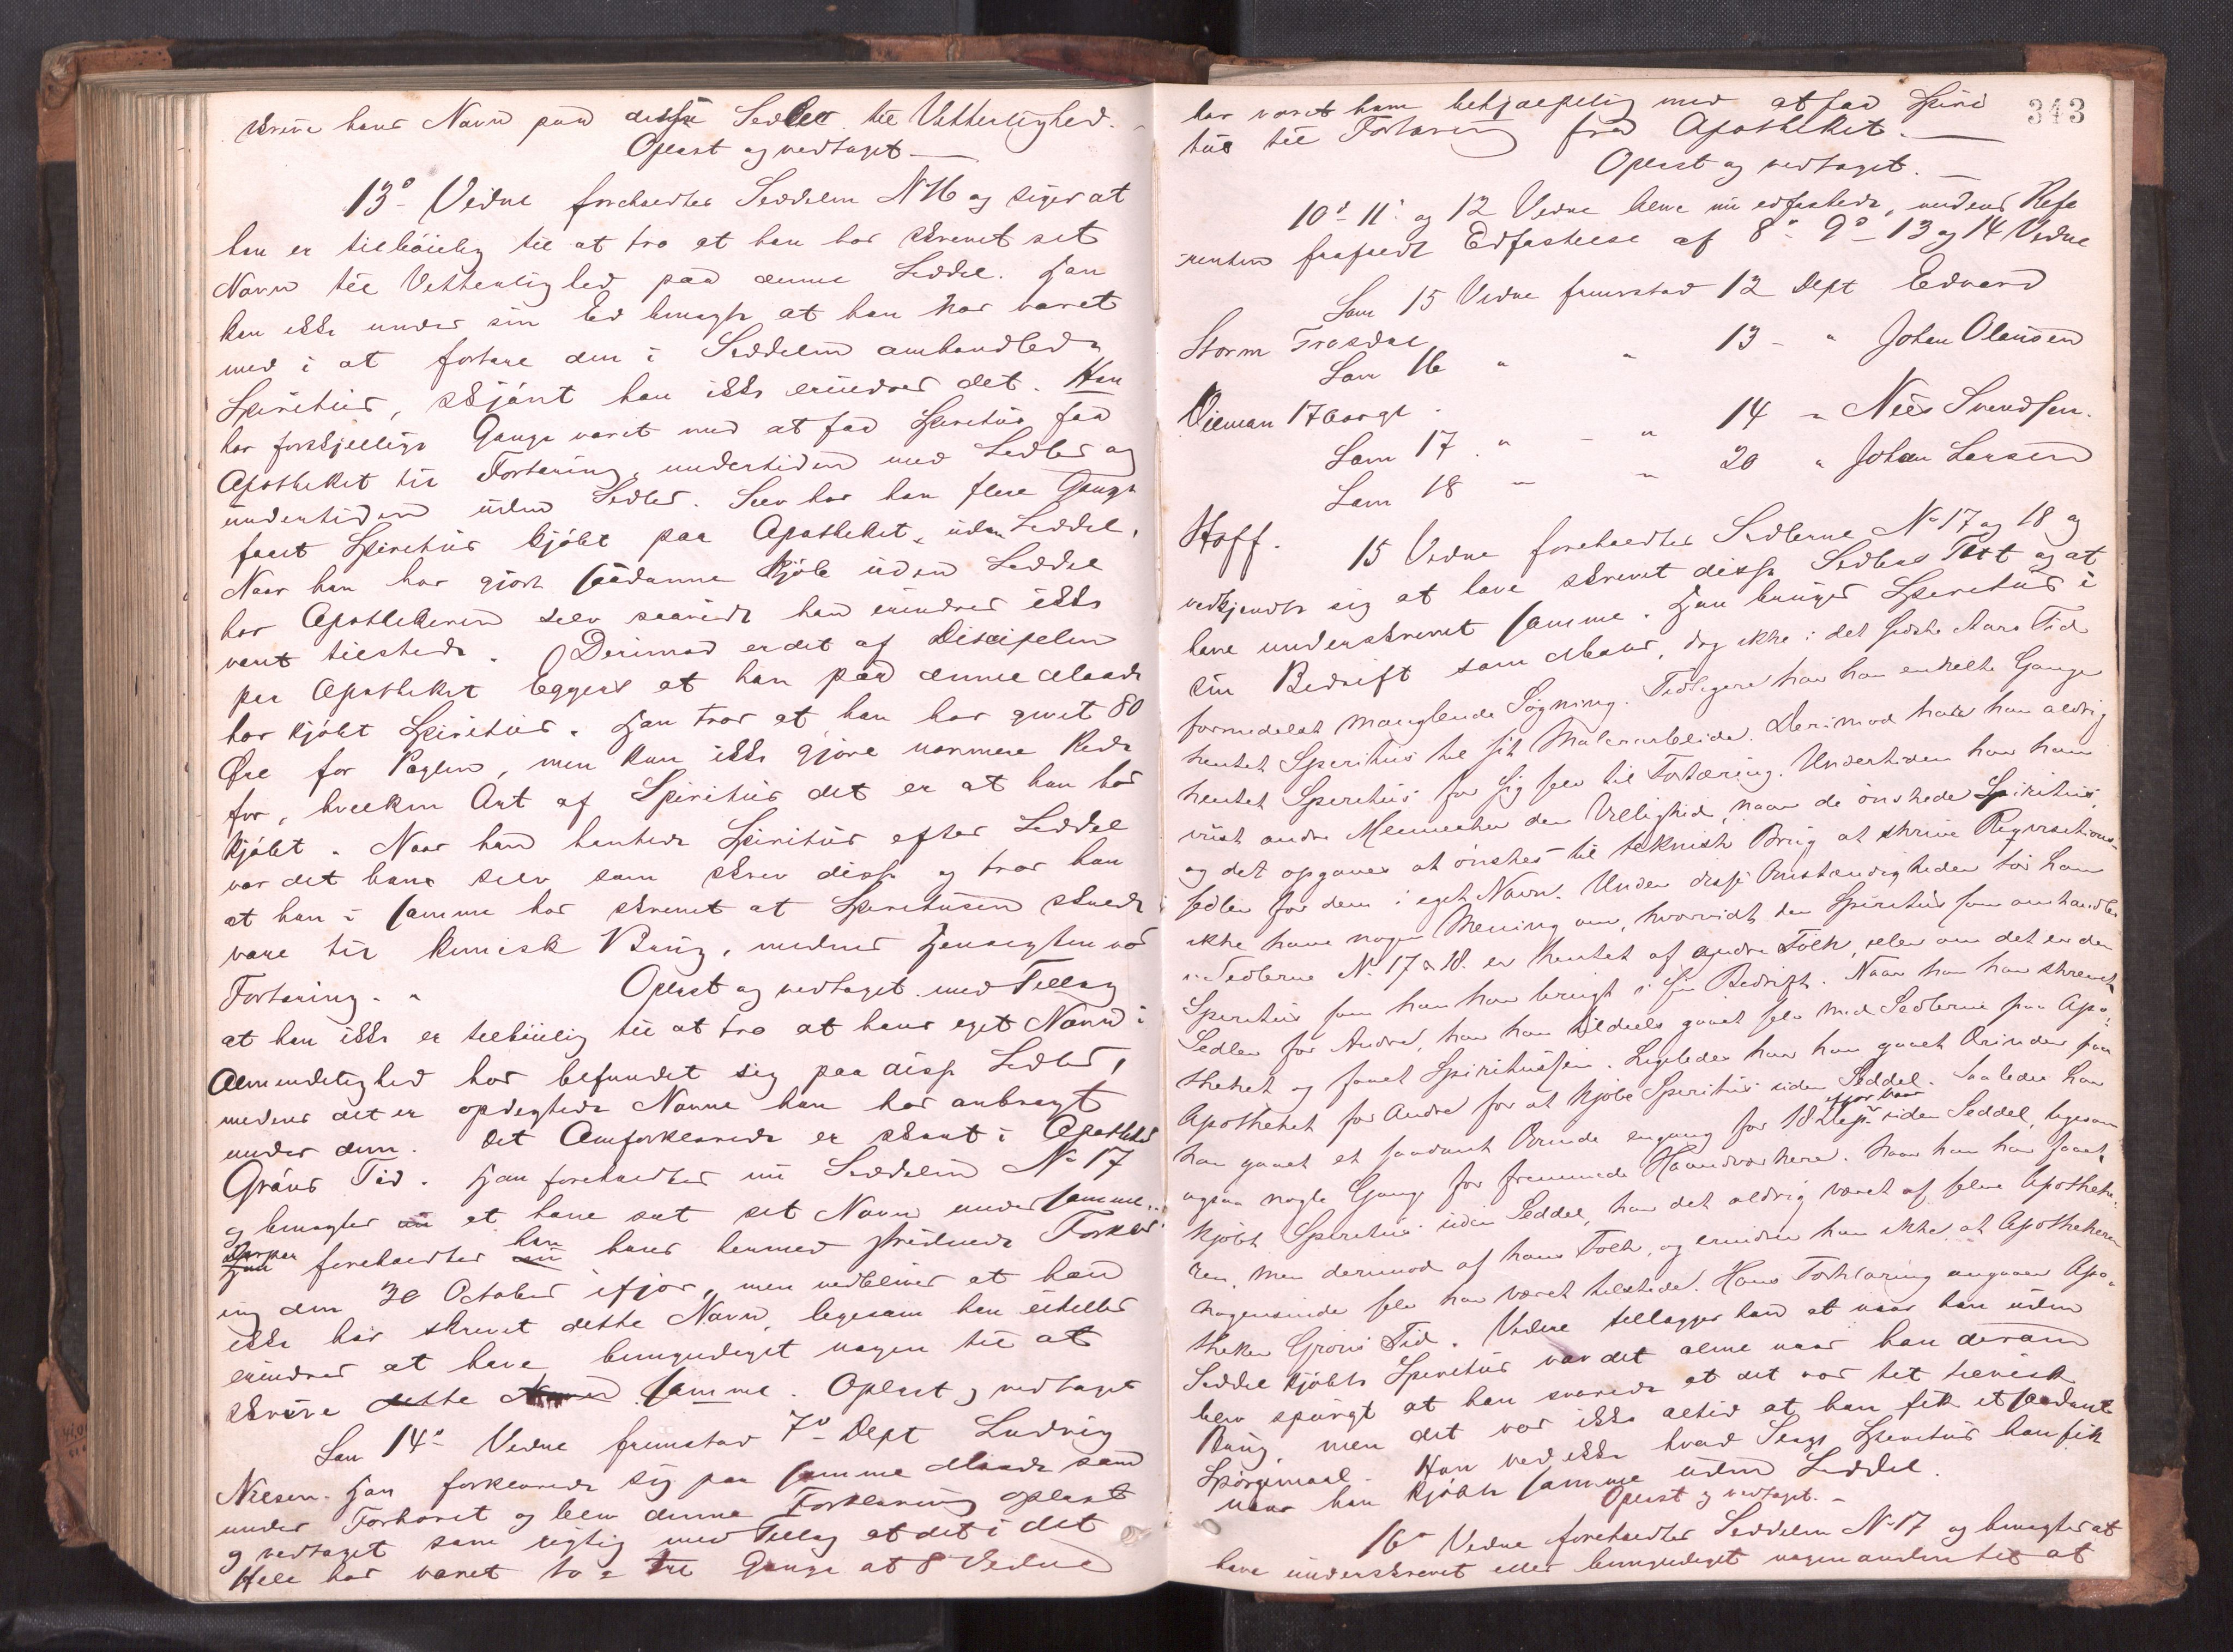 skrive hans Navn paa disse Sedler til Vitterlighed.
Oplæst og vedtaget
13de Vidne foreholdtes Seddelen N 16 og siger at
han er tilbøielig til at tro at han har skrevet sit
Navn til Vitterlighed paa denne Seddel. Han
kan ikke under sin Ed benægte at han har været
med i at fortære den i Seddelen omhandlede
Spiritus, skjønt han ikke erindrer det. Han
har forskjellige Gange været med at faa Spiritus fra
Apotheket til Fortæring, undertiden med Sedler og
undertiden uden Sedler. Selv har han flere Gange
faaet Spiritus kjøbt paa Apotheket uden Seddel.
Naar han har gjort saadanne Kjøb uden Seddel
har Apothekeren selv saavidt han erindrer ikke
været tilstede. Derimod er det af Disciplen
paa Apotheket at han paa denne Maade
har kjøbt Spiritus. Han tror at han har givet 80
Øre for Pæglen, men kan ikke gjøre nærmere Rede
for, hvilken Art af Spiritus det er at han har
kjøbt. Naar han hentede Spiritus efter Seddel
var det hans selv som skrev disse og tror han
at han i samme har skrevet at Spiritusen skulde
være til kemisk Brug, medens Hensigten var
Fortæring. Oplæst og vedtaget med Tillæg
at han ikke er tilbøielig til at tro at hans eget Navn i
Almindelighed har befundet sig paa disse Sedler,
medens det er opdigtede Navne han har anbragt
under dem. Det Omforklarede er skeet i Apotheker
Gröns Tid. Han foreholdtes nu Seddelen No 17
og benægter at have sat sit Navn under samme.
foreholdtes han hans hermed stridende Forklar
ing den 30 October ifjor, men vedbliver at han
ikke har skrevet dette Navn, ligesom han ei heller
erindrer at have bemyndiget nogen til at
skrive dette samme. Oplæst og vedtaget
Som 14de Vidne fremstod 7de Dept Ludvig
Nilsen. Han forklarede sig paa samme Maade som
under Forhøret og blev denne Forklaring oplæst
og vedtaget som rigtig med Tillæg at det i det
Hele har været to a tre Gange at 8 Vidne
343
har været ham behjælpelig med at faa Spiri
tus til Fortæring fra Apotheket.
Oplæst og vedtaget.
10de 11te og 12 Vidne bleve nu edfæstede, medens Refe
renten frafaldt Edfæstelse af 8de 9de 13 og 14 Vidne
Som 15 Vidne fremstod 12 Dept Edvard
Storm
Som 16 " " 13 - " Johan Olausen
Som 17 " - " 14 " Nils Svendsen.
Som 18 " " 20 " Johan Larsen
Hoff.
15 Vidne foreholdtes Sedlerne No 17 og 18 og
vedkjendte sig at have skrevet disse Sedlers Text og at
have underskrevet samme. Han bruger Spiritus i
sin Bedrift som Maler, dog ikke i det sidste Aars Tid
formedelst manglende Søgning. Tidligere har han enkelte Gange
hentet Spiritus til sit Malerarbeide. Derimod har han aldrig
hentet Spiritus for sig selv til Fortæring. Undertiden har han
viist andre Mennesker den Villighed, naar de ønskede Spiritus,
og det opgaves at ønskes til teknisk Brug at skrive Reqvisitions-
sedler for dem i eget Navn. Under disse Omstændigheder tør han
ikke have nogen Mening om, hvorvidt den Spiritus som omhandles
i Sedlerne No 17 & 18. er hentet af andre Folk, eller om det er den
Spiritus som han har brugt i sin Bedrift. Naar han har skrevet
Sedler for Andre, har han tildeels gaaet selv med Sedlerne paa Apo-
theket og faaet Spiritussen. Ligeledes har han gaaet Ærinder paa
Apotheket for Andre for at kjøbe Spiritus uden Seddel. Saaledes har
han gaaet et saadant Ærinde engang for 18 Dept. uden Seddel, ligesom
ogsaa nogle Gange for fremmede Haandværkere. Naar han har faaet
kjøbt Spiritus uden Seddel, har det aldrig været af selve Apotheke-
ren, men derimod af hans Folk, og erindrer han ikke at Apothekeren
nogensinde selv har været tilstede. Hans Forklaring angaaer Apo-
theker Gröns Tid. Vidnet tillægger han at naar han uden
Seddel kjøbte Spiritus var det alene naar han derom
blev spurgt at han svarede at det var til teknisk
Brug, men det var ikke altid at han fik et saadant
Spørgsmaal. Han ved ikke hvad Slags Spiritus han fik
naar han kjøbte samme uden Seddel.
Oplæst og vedtaget.
16de Vidne foreholdtes Seddelen No 17 og benægter at
have underskrevet eller bemyndiget nogen anden til at